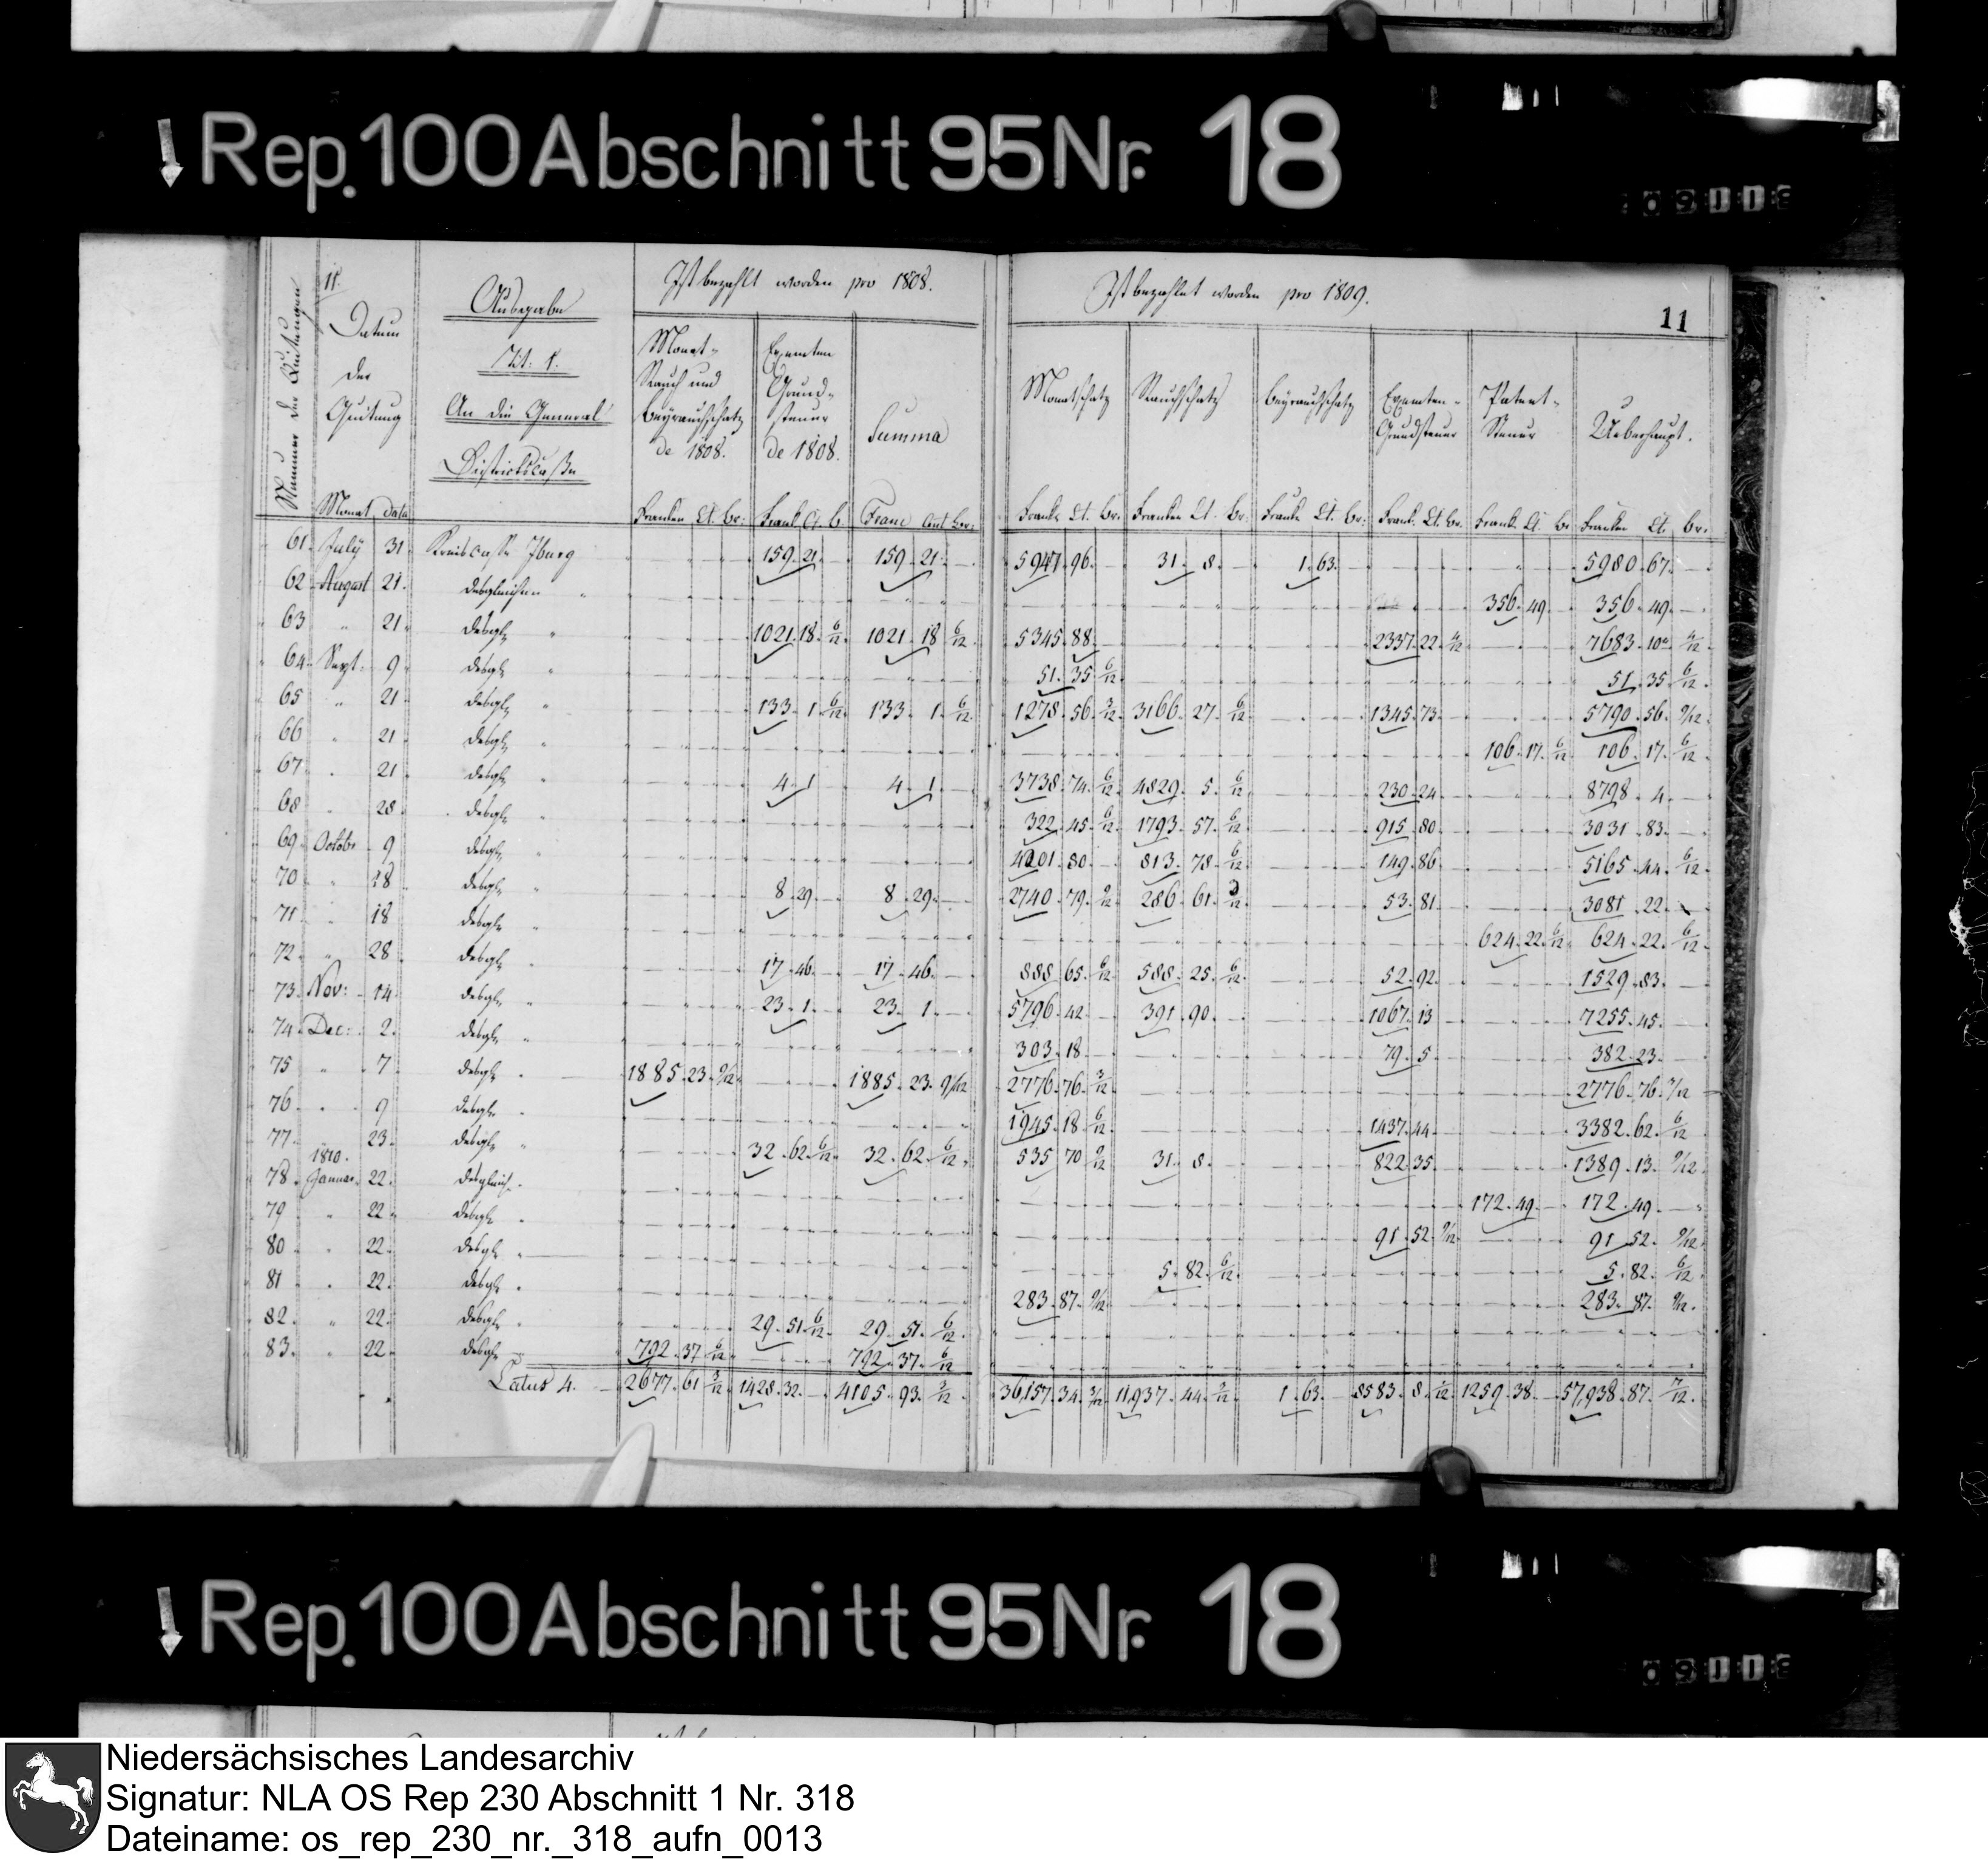 Rep.100 Abschnitt 95 Nr. 18
11.
Ausgabe
Tit: 1.
An die General
Districtscasse
Nummer der Quitungen
Datum
der
Quitung
Monat data
Ist bezahlt worden pro 1808.
Monat-
Rauch und
Beyrauchschatz
de 1808.
Exemten
Grund-
steuer
de 1808.
Summa
Ist bezahlet worden pro 1809.
11
Monatschatz
Rauchschatz
Beyrauchschatz
Exemten-
Grundsteuer
Patent-
Steuer
Ueberhaupt.
Franken Ct. br: Frank Ct. b. Franc Cent br: Frank Ct. br. Franken Ct. br: Frank Ct. br: Frank. Ct. br. Frank. Ct. br Franken Ct. br.
61. July 31. Kreiscasse Iburg 159. 21. 159. 21. 5947. 96. 31. 8. 1. 63. 5980. 67.
62. August 21. desgleichen " 356. 49. 356. 49.
63 " 21. desgl. " 1021. 18. 6/12 1021. 18 6/12 5345. 88. 2337. 22. 4/12 7683. 10. 4/12
64. Sept. 9. desgl. " 51. 35 6/12 51. 35 6/12
65 " 21. desgl. " 133. 1. 6/12 133. 1. 6/12 1278. 56. 3/12 3166. 27. 6/12 1345. 73. 5790. 56. 9/12
66 " 21. desgl. " 106. 17. 6/12 106. 17. 6/12
67. " 21. desgl. " 4. 1 4. 1. 3738. 74. 6/12 4829. 5. 6/12 230. 24. 8798. 4.
68 " 28. desgl. " 322. 45. 6/12 1793. 57. 6/12 915. 80. 3031. 83.
69. Octobr 9. desgl. " 4201. 80. 813. 78. 6/12 149. 86 5165. 44. 6/12
70. " 18. desgl. " 8. 29. 8. 29. 2740. 79. 9/12 286. 61. 3/12 53. 81. 3081. 22.
71. " 18 desgl. " 624. 22. 6/12 624. 22. 6/12
72. " 28. desgl. " 17. 46. 17. 46. 888. 65. 6/12 588. 25. 6/12 52. 92. 1529. 83.
73. Nov: 14. desgl. " 23. 1. 23. 1. 5796. 42. 391. 90. 1067. 13 7255. 45.
74. Dec: 2. desgl. " 303. 18. 79. 5. 382. 23.
75 " 7. desgl. " 1885. 23. 9/12 1885. 23. 9/12 2776. 76. 3/12 2776. 76. 3/12
76. " 9 desgl. " 1945. 18 6/12 1437. 44. 3382. 62. 6/12
77. 23. desgl. " 32. 62. 6/12 32. 62. 6/12 535 70 9/12 31. 8. 822. 35. 1389. 13. 9/12
1810.
78. Januar. 22. desgleich. 172. 49. 172. 49.
79 " 22. desgl. " 91. 52. 9/12 91. 52. 9/12
80. " 22. desgl. " 5. 82. 6/12 5. 82. 6/12
81 " 22. desgl. " 283. 87. 9/12 283. 87. 9/12
82. " 22. desgl. " 29. 51. 6/12 29. 51. 6/12
83. " 22. desgl. 792. 37 6/12 792. 37. 6/12
Latus 4. 2677. 61 3/12 1428. 32. 4105. 93. 3/12 36,157. 34. 3/12 11,937. 44. 3/12 1. 63. 8583. 8. 1/12 1259. 38. 57,938. 87. 7/12
Rep.100 Abschnitt 95 Nr. 18
Niedersächsisches Landesarchiv
Signatur: NLA OS Rep 230 Abschnitt 1 Nr. 318
Dateiname: os_rep_230_nr._318_aufn_0013